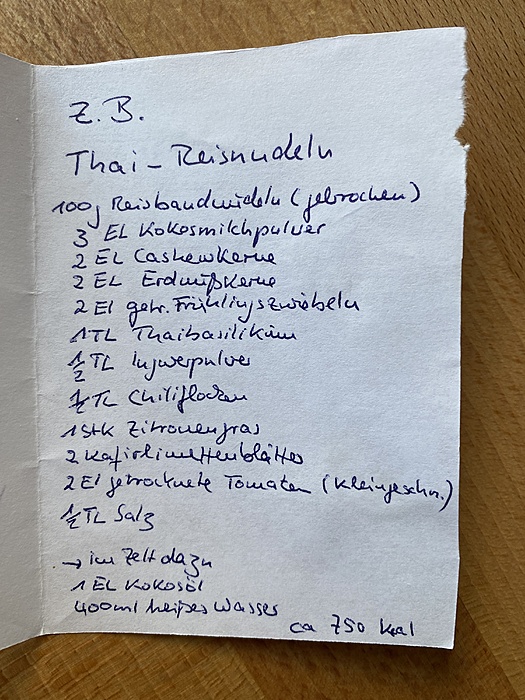 Z.B.
Thai-Reisnudeln
100g Reisbandnudeln (gebrochen)
3 EL Kokosmilchpulver
2 EL Cashewkerne
2 EL Erdnußkerne
2 El getr. Frühlingszwiebeln
1TL Thaibasilikum
1/2 TL Ingwerpulver
1/2 TL Chiliflocken
1 Stk Zitronengras
2 Kafirlimettenblätter
2 El getrocknete Tomaten (kleingeschn.)
1/2 TL Salz
→ im Zelt dazu
1 EL Kokosöl
400ml heißes Wasser
ca 750 kcal